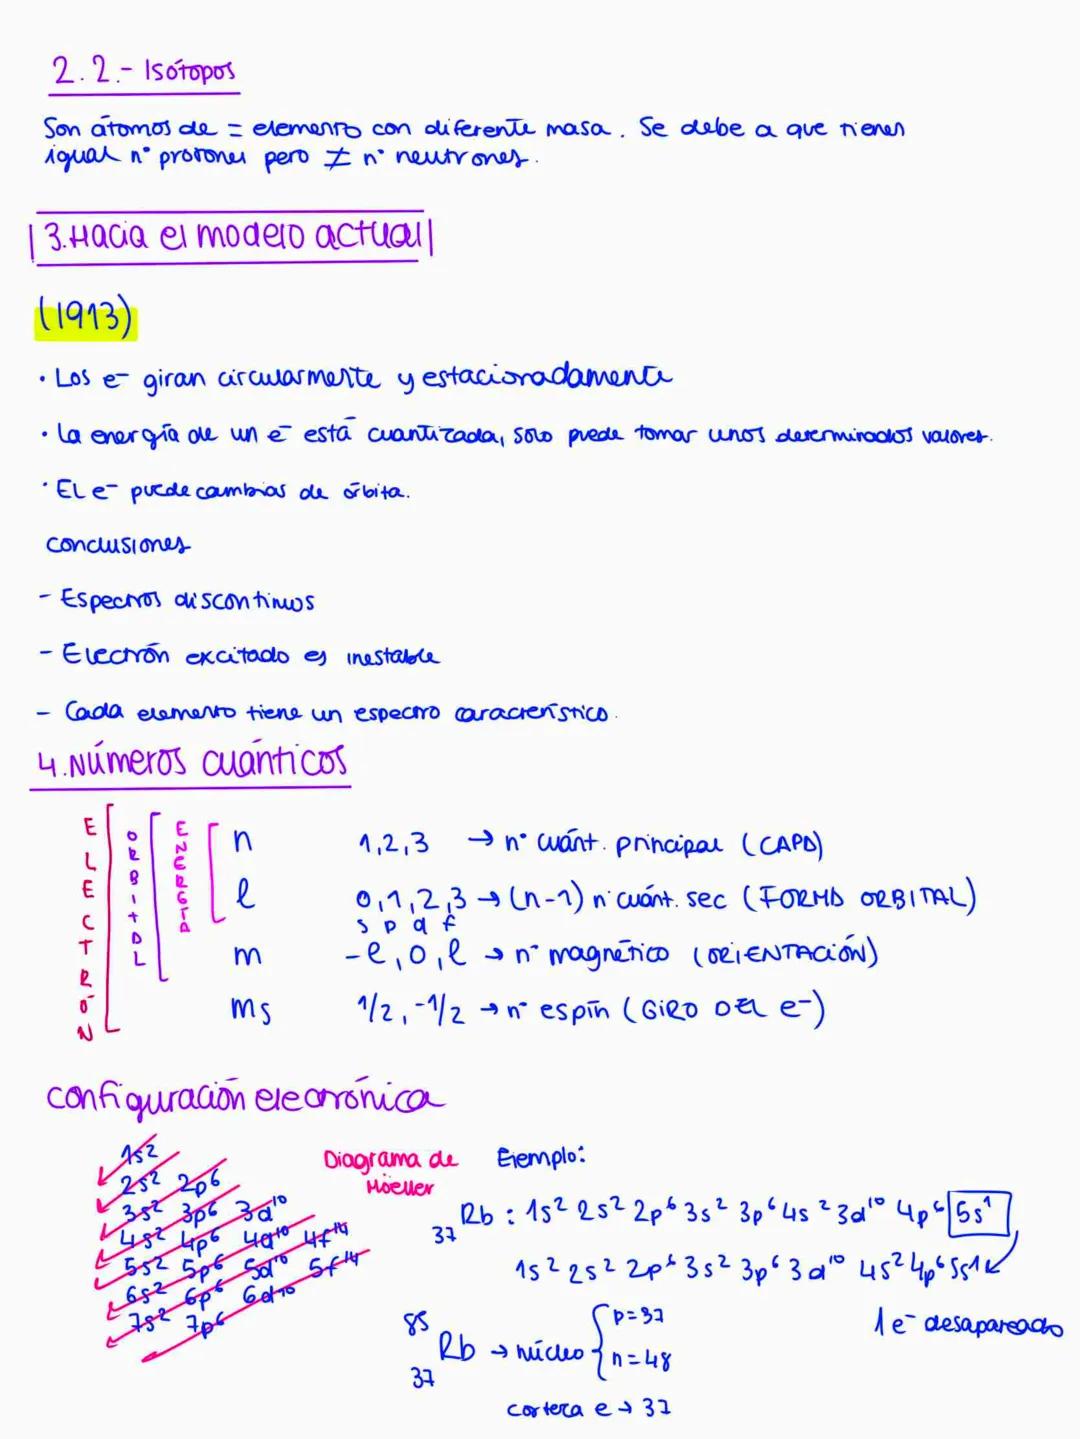 2.2.- Isótopos
Son átomos de = elemento con diferente masa. Se debe a que tienen
igual nº protones pero ≠ nº neutrones.
3.Hacia el modelo actual
(1913)
· Los e- giran circularmente y estacionadamente
· La energía de un e- está cuantizada, solo puede tomar unos determinados valores.
· El e- puede cambiar de órbita.
conclusiones
- Espectros discontinuos
- Electrón excitado es inestable
- Cada elemento tiene un espectro característico.
4.Números cuánticos
ELECTRÓN
ORBITAL
ENERGÍA
n 1,2,3 → nº cuánt. principal (CAPA)
l 0,1,2,3 → (n-1) nº cuánt. sec (FORMA ORBITAL)
s p d f
m -l,0,l → nº magnético (ORIENTACIÓN)
ms 1/2,-1/2 → nº espín (GIRO DEL e-)
configuración electrónica
1s²
2s² 2p⁶
3s² 3p⁶ 3d¹⁰
4s² 4p⁶ 4d¹⁰ 4f¹⁴
5s² 5p⁶ 5d¹⁰ 5f¹⁴
6s² 6p⁶ 6d¹⁰
7s² 7p⁶
Diagrama de
Moeller
Ejemplo:
₃₇Rb : 1s² 2s² 2p⁶ 3s² 3p⁶ 4s² 3d¹⁰ 4p⁶ 5s¹
1s² 2s² 2p⁶ 3s² 3p⁶ 3d¹⁰ 4s² 4p⁶ 5s¹
1 e- desapareado
85
37
Rb → núcleo { p=37
n=48
corteza e → 37